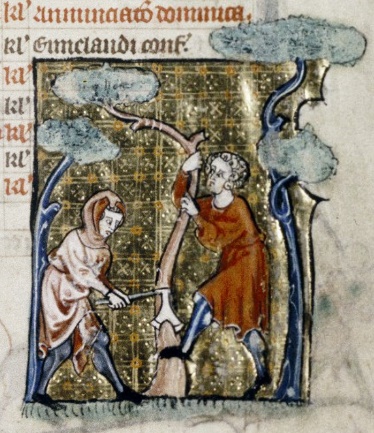 kl' Annunciatō dominica.
kl' conf'
kl'
kl'
kl'
kl'
kl'